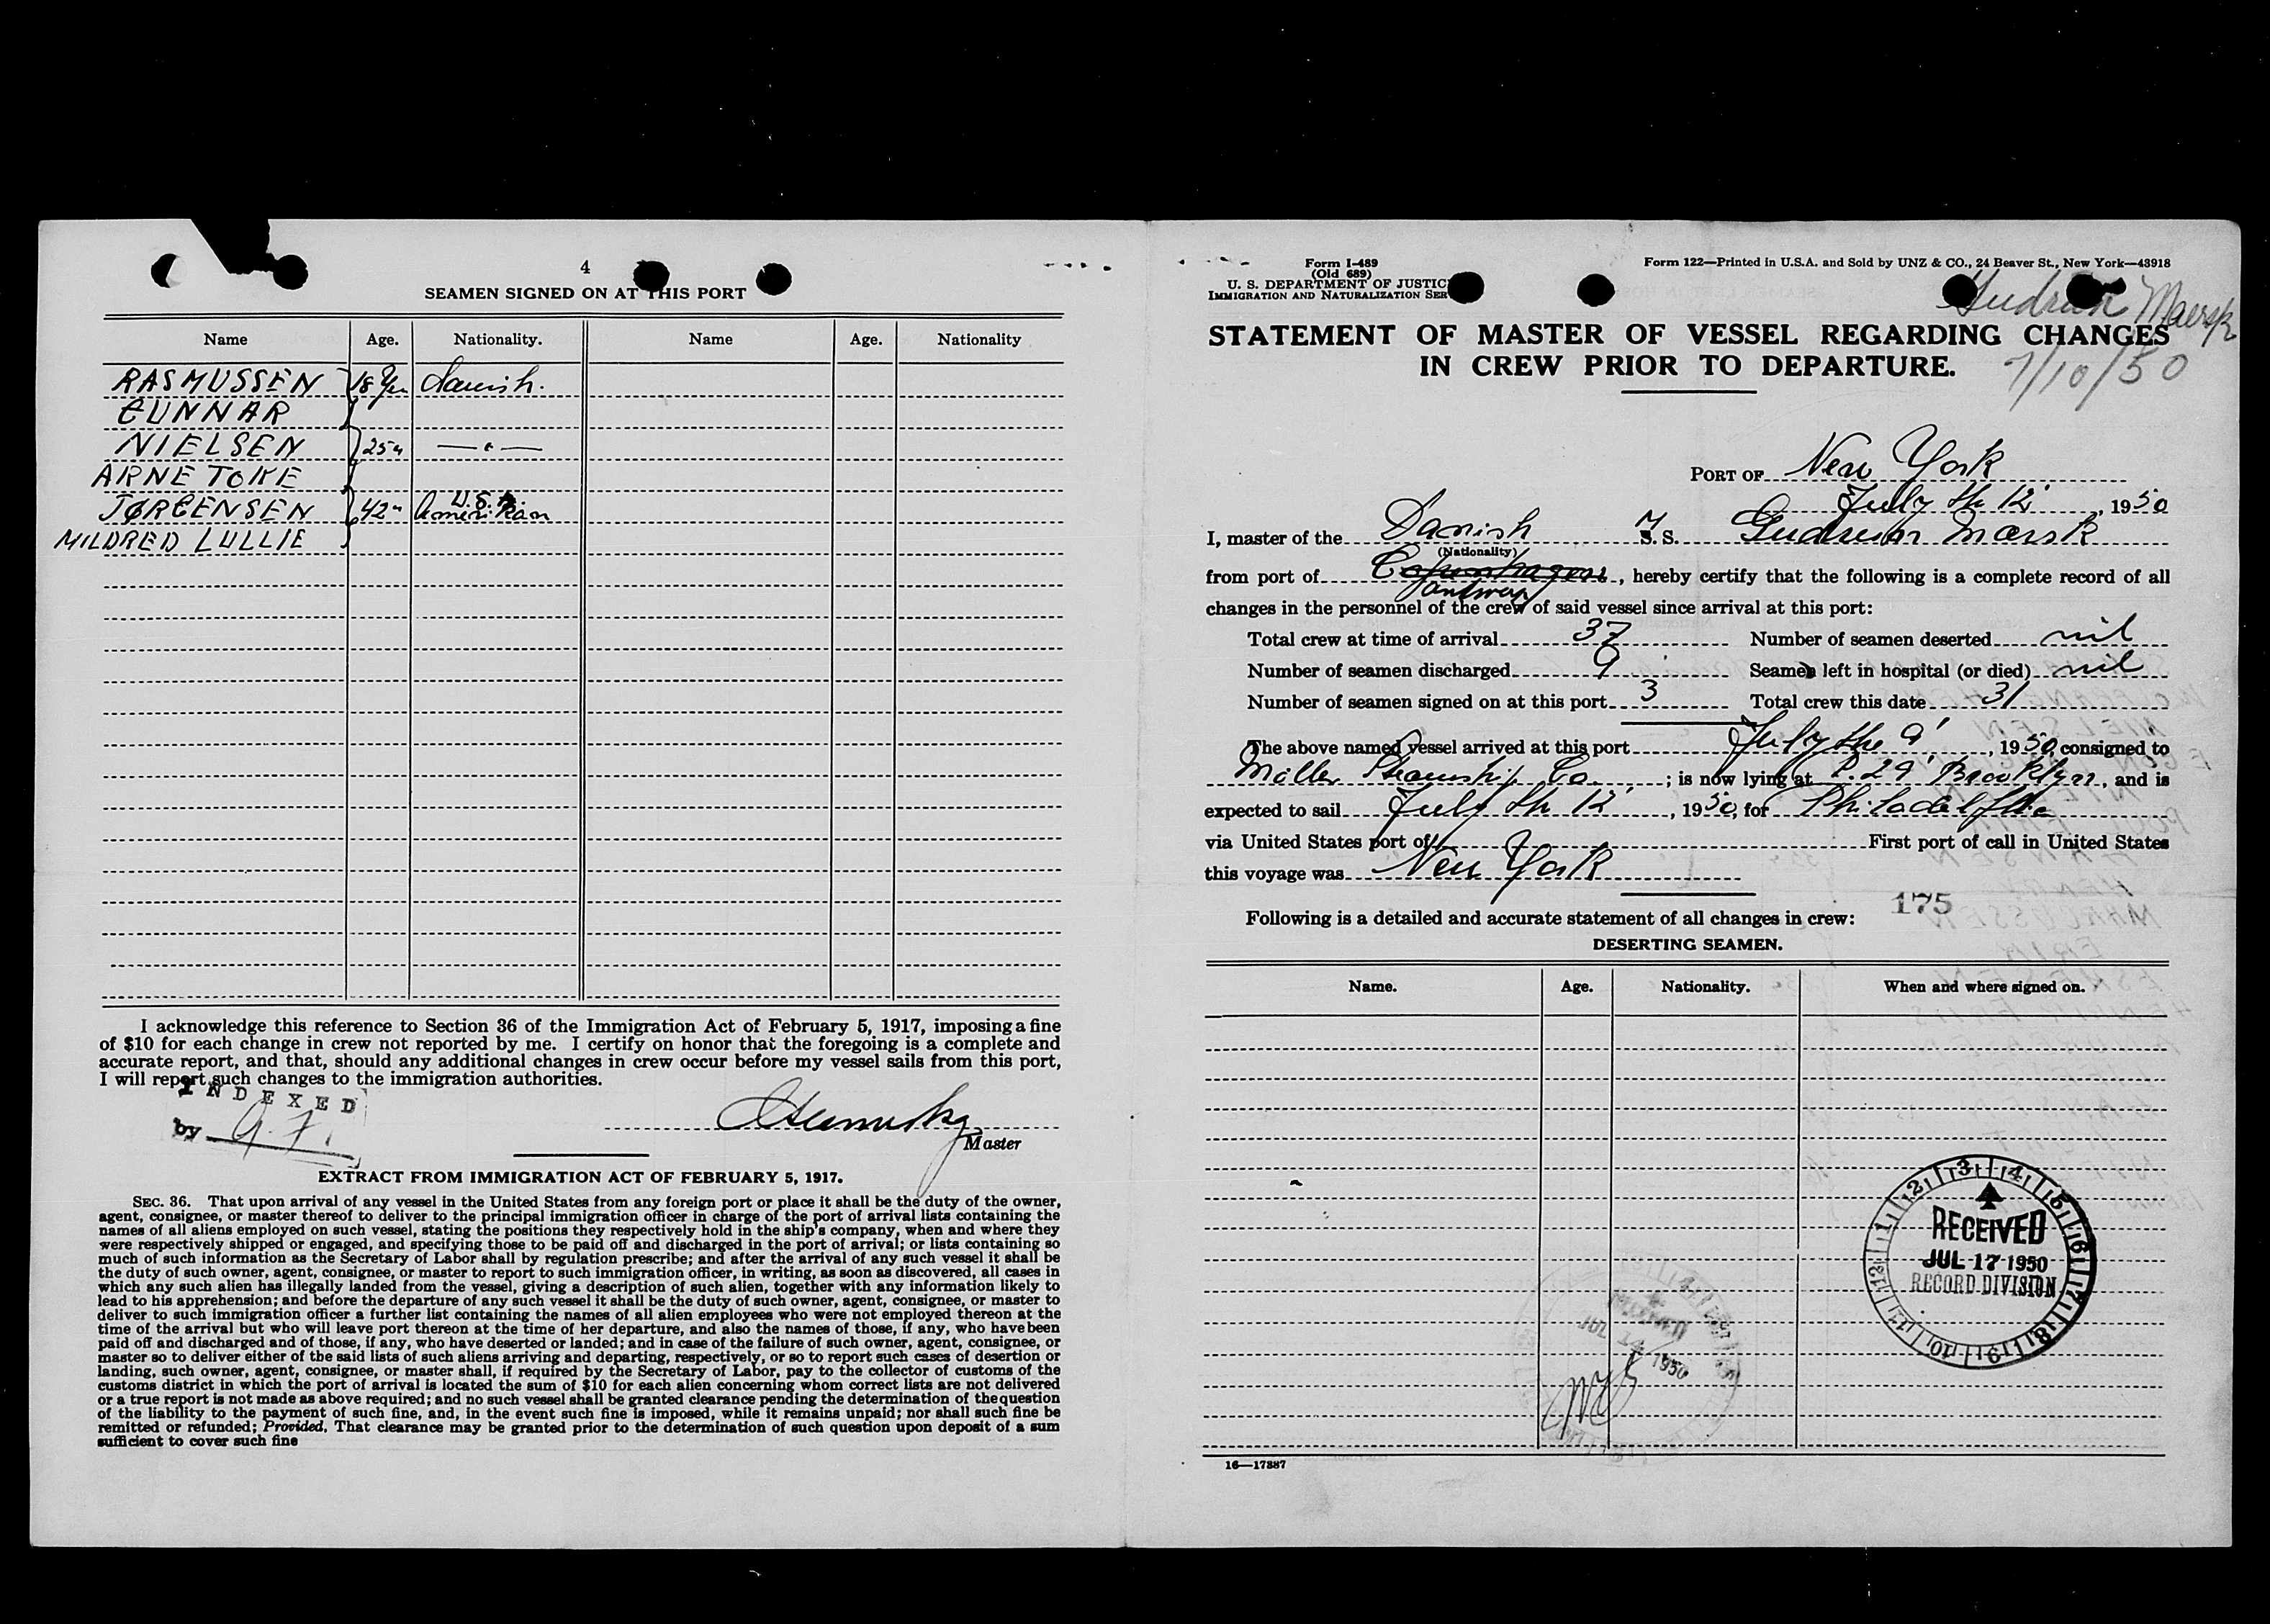 4
SEAMEN SIGNED ON AT THIS PORT
Name Age. Nationality. Name Age. Nationality
RASMUSSEN 18 Yrs danish.
GUNNAR
NIELSEN 25 " — " —
ARNE TOKE
U.S.A.
JØRGENSEN 42 " Amerikan
MILDRED LULLIE
I acknowledge this reference to Section 36 of the Immigration Act of February 5, 1917, imposing a fine
of $10 for each change in crew not reported by me. I certify on honor that the foregoing is a complete and
accurate report, and that, should any additional changes in crew occur before my vessel sails from this port,
I will report such changes to the immigration authorities.
INDEXED
by
Master
EXTRACT FROM IMMIGRATION ACT OF FEBRUARY 5, 1917.
SEC. 36. That upon arrival of any vessel in the United States from any foreign port or place it shall be the duty of the owner,
agent, consignee, or master thereof to deliver to the principal immigration officer in charge of the port of arrival lists containing the
names of all aliens employed on such vessel, stating the positions they respectively hold in the ship's company, when and where they
were respectively shipped or engaged, and specifying those to be paid off and discharged in the port of arrival; or lists containing so
much of such information as the Secretary of Labor shall by regulation prescribe; and after the arrival of any such vessel it shall be
the duty of such owner, agent, consignee, or master to report to such immigration officer, in writing, as soon as discovered, all cases in
which any such alien has illegally landed from the vessel, giving a description of such alien, together with any information likely to
lead to his apprehension; and before the departure of any such vessel it shall be the duty of such owner, agent, consignee, or master to
deliver to such immigration officer a further list containing the names of all alien employees who were not employed thereon at the
time of the arrival but who will leave port thereon at the time of her departure, and also the names of those, if any, who have been
paid off and discharged and of those, if any, who have deserted or landed; and in case of the failure of such owner, agent, consignee, or
master so to deliver either of the said lists of such aliens arriving and departing, respectively, or so to report such cases of desertion or
landing, such owner, agent, consignee, or master shall, if required by the Secretary of Labor, pay to the collector of customs of the
customs district in which the port of arrival is located the sum of $10 for each alien concerning whom correct lists are not delivered
or a true report is not made as above required; and no such vessel shall be granted clearance pending the determination of the question
of the liability to the payment of such fine, and, in the event such fine is imposed, while it remains unpaid; nor shall such fine be
remitted or refunded; Provided, That clearance may be granted prior to the determination of such question upon deposit of a sum
sufficient to cover such fine
Form I-489
(Old 689)
U. S. DEPARTMENT OF JUSTIC
IMMIGRATION AND NATURALIZATION SER
Form 122—Printed in U.S.A. and Sold by UNZ & CO., 24 Beaver St., New York—43918
Gudrun Maersk
STATEMENT OF MASTER OF VESSEL REGARDING CHANGES
IN CREW PRIOR TO DEPARTURE.
7/10/50
PORT OF New York
July th 12', 1950
I, master of the Danish M S. Gudrun Mærsk
(Nationality)
from port of Copenhagen, hereby certify that the following is a complete record of all
changes in the personnel of the crew of said vessel since arrival at this port:
Total crew at time of arrival 37 Number of seamen deserted nil
Number of seamen discharged 9 Seamen left in hospital (or died) nil
Number of seamen signed on at this port 3 Total crew this date 31
The above named vessel arrived at this port July the 9', 1950, consigned to
Möller Steamship Co. ; is now lying at P. 29' Brooklyn, and is
expected to sail July th 12', 1950, for Philadelphia
via United States port of First port of call in United States
this voyage was New York
175
Following is a detailed and accurate statement of all changes in crew:
DESERTING SEAMEN.
Name. Age. Nationality. When and where signed on.
RECEIVED
JUL 17 1950
RECORD DIVISION
16—17387